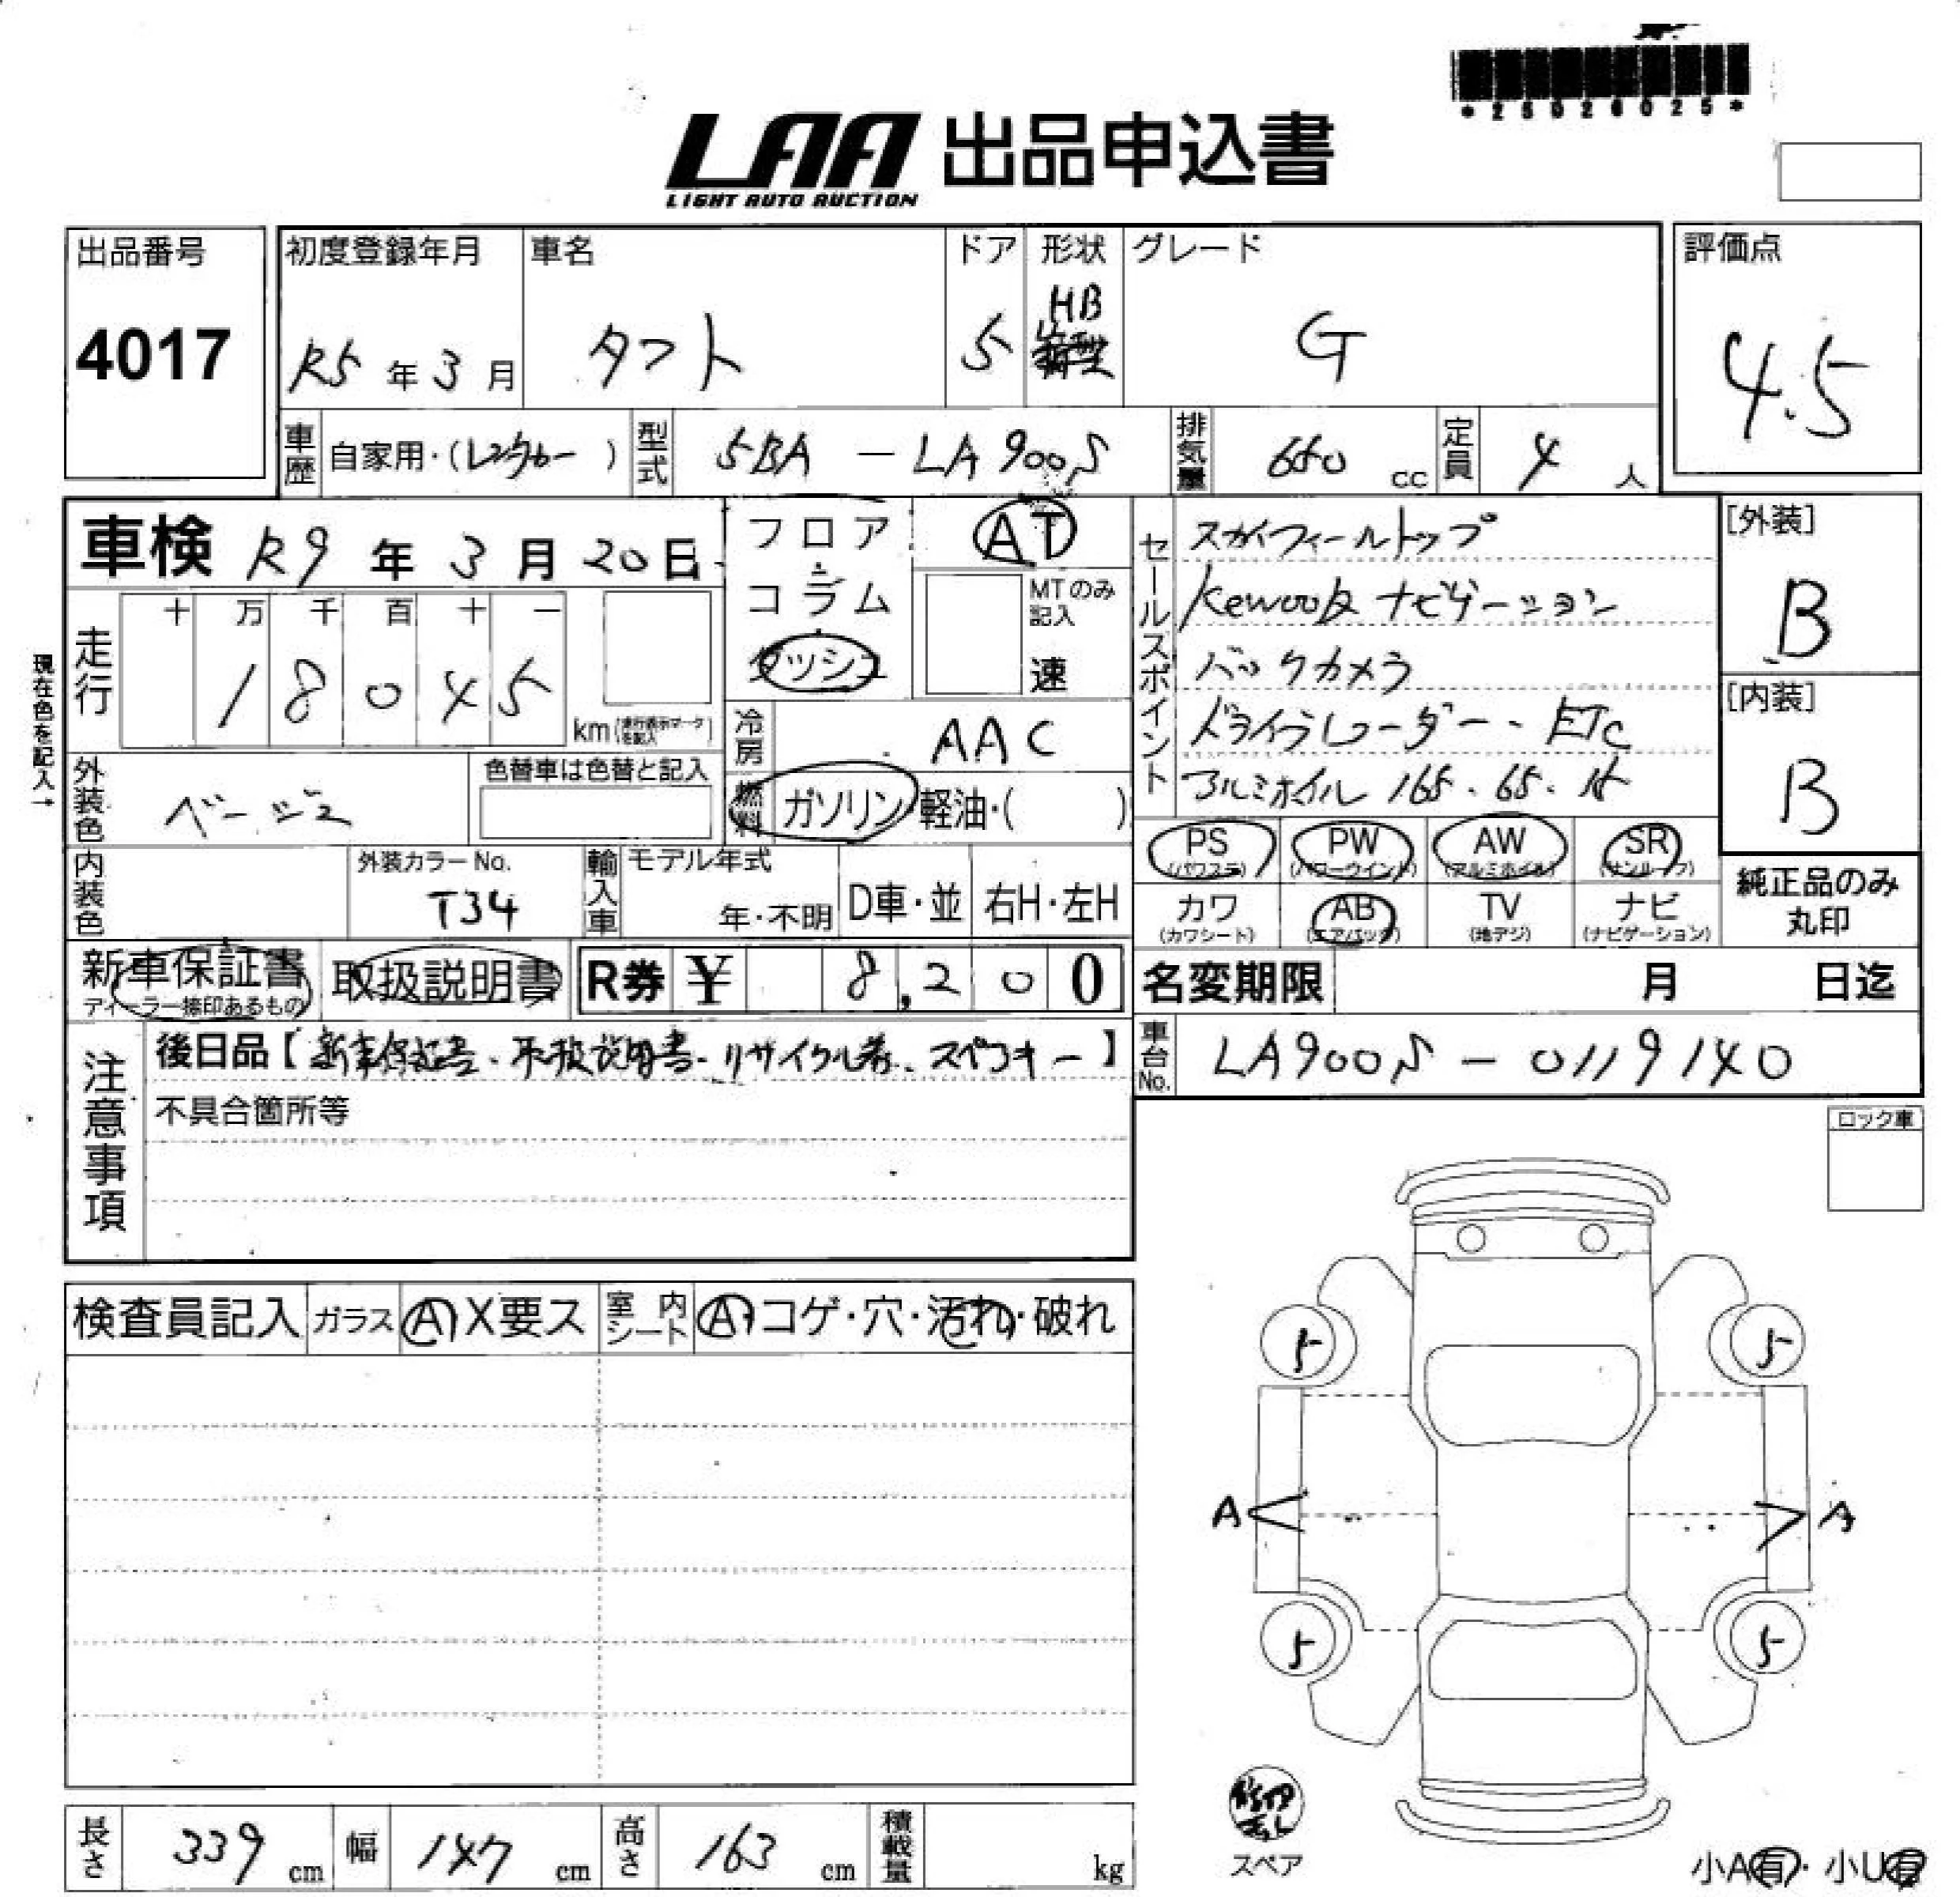 *25026025*
LAA 出品申込書
LIGHT AUTO AUCTION
出品番号
4017
初度登録年月
R5年3月
車名
タフト
ドア
5
形状
HB
グレード
G
評価点
4.5
車歴 自家用・(レンタカー)
型式 5BA - LA900S
排気量 660 cc
定員 4 人
車検 R9年3月20日
フロア
コラム
ダッシュ
AT
MTのみ記入
速
走行
十万千百十一
18045
km(走行表示マークを記入)
現在色を記入→
冷房 AAC
燃料 ガソリン・軽油・( )
外装色 ベージュ
色替車は色替と記入
内装色
外装カラーNo.
T34
輸入車
モデル年式
年・不明
D車・並
右H・左H
セールスポイント
スカイフィールトップ
ナビゲーション
バックカメラ
ドライブレコーダー・ETC
アルミホイル 165.65.15
[外装]
B
[内装]
B
PS (パワステ)
PW (パワーウインド)
AW (アルミホイル)
SR (サンルーフ)
カワ (カワシート)
AB (エアバッグ)
TV (地デジ)
ナビ (ナビゲーション)
純正品のみ
丸印
新車保証書
ディーラー捺印あるもの
取扱説明書
R券 ¥ 8,200
名変期限 月 日迄
車台No. LA900S - 0119140
注意事項
後日品【新車保証書・取扱説明書・リサイクル券・スペアキー】
不具合箇所等
ロック車
検査員記入
ガラス A X要ス
室内シート A・コゲ・穴・汚れ・破れ
5
5
A
A
5
5
スペア
小A有・小U有
長さ 339 cm
幅 147 cm
高さ 163 cm
積載量 kg